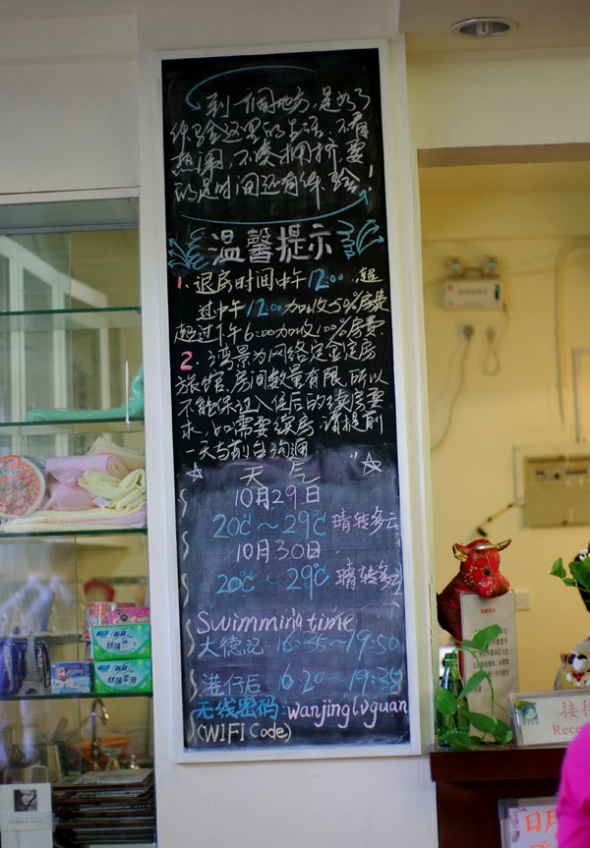 到一个地方,是为了
体验这里的生活,不看
热闹,不凑拥挤,要
的是时间还有体验!
温馨提示
1、退房时间中午12:00,超
过中午12:00加收50%房费
超过下午6:00加收100%房费.
2、湾景为网络定金定房
旅馆,房间数量有限,所以
不能保证入住后的续房要
求,如需要续房 请提前
一天与前台沟通
天气
10月29日
20℃~29℃ 晴转多云
10月30日
20℃~29℃ 晴转多云
Swimming time
大德记:16:35~19:50
港仔后 16:20~19:35
无线密码:wanjinglvguan
(WIFI Code)
接待
Rece